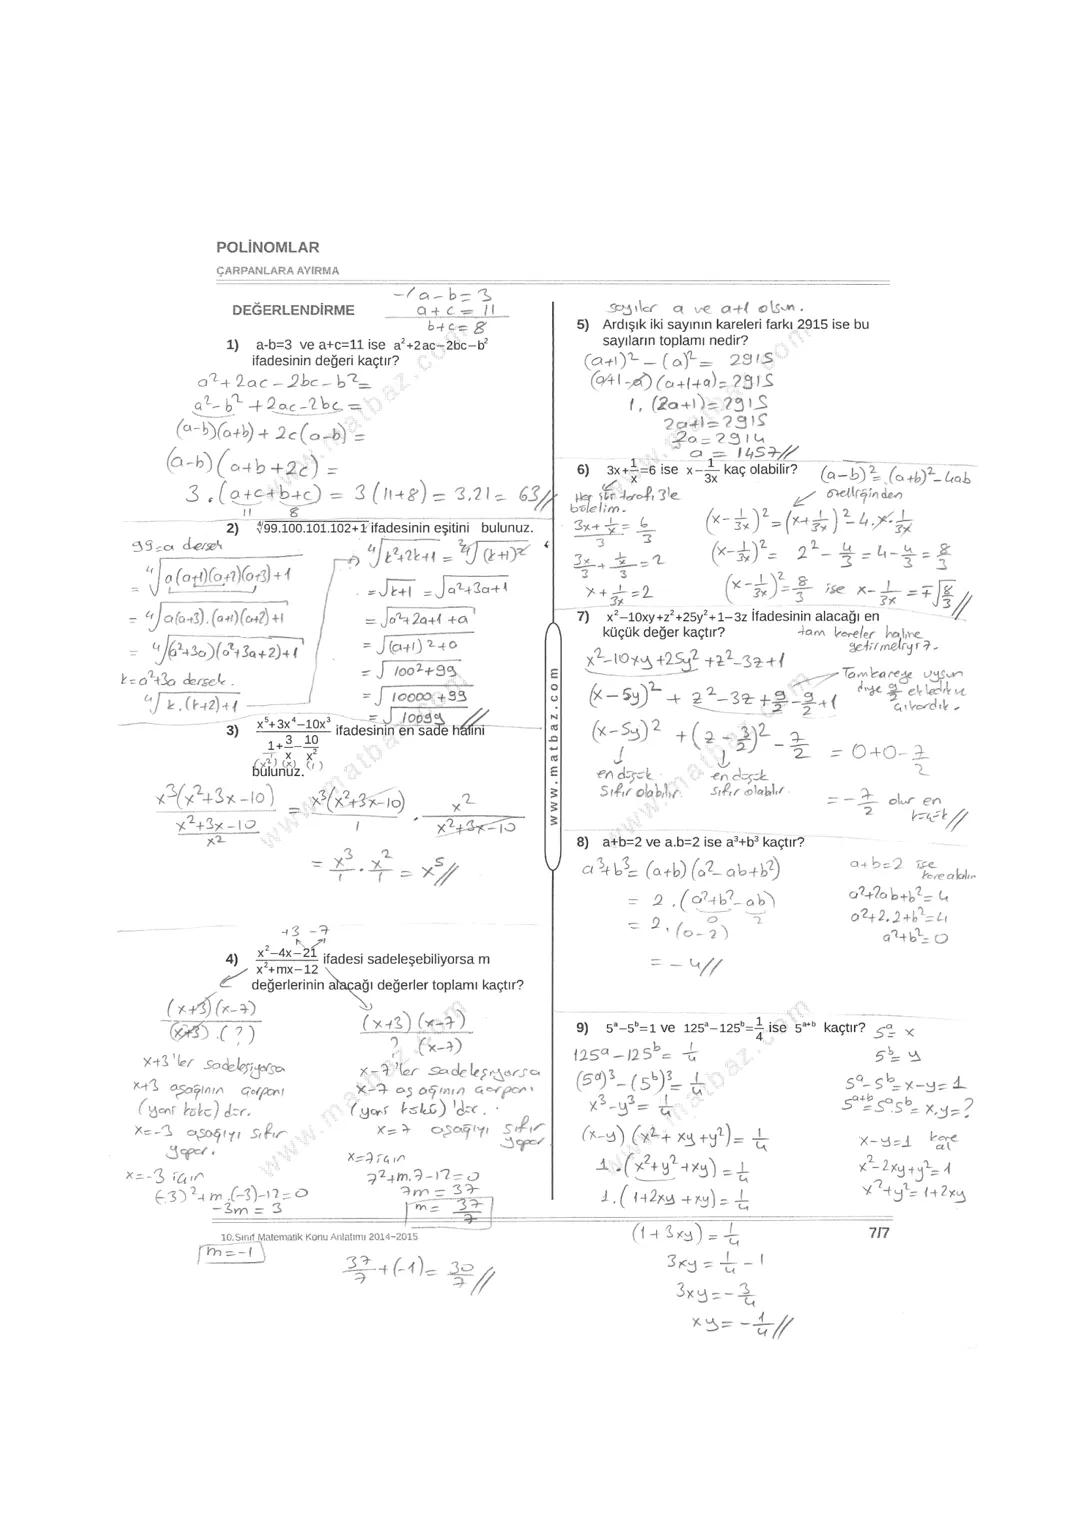 POLİNOMLAR
ÇARPANLARA AYIRMA
DEĞERLENDİRME
-/ a-b=3
a+c=11
b+c=8
1) a-b=3 ve a+c=11 ise a²+2ac-2bc-b²
ifadesinin değeri kaçtır?
a²+2ac-2bc-b²=
a²-b²+2ac-2bc=
(a-b)(a+b)+2c(a-b)=
(a-b)(a+b+2c)=
3.(a+c+b+c) = 3(11+8) = 3.21 = 63//
11 8
2) ∜99.100.101.102+1 ifadesinin eşitini bulunuz.
99=a dersek
= ∜a(a+1)(a+2)(a+3)+1
= ∜a(a+3).(a+1)(a+2)+1
= ∜(a²+3a)(a²+3a+2)+1
k=a²+3a dersek.
∜k.(k+2)+1
∜k²+2k+1 = ∜(k+1)²
= √k+1 = √a²+3a+1
= √a²+2a+1+a
= √(a+1)²+a
= √100²+99
= √10000+99
= √10099 //
3) x⁵+3x⁴-10x³ ifadesinin en sade halini
1+3/x-10/x²
(x²) (x) (1)
bulunuz.
x³(x²+3x-10) = x³(x²+3x-10) . x²
x²+3x-10 1 x²+3x-10
x²
= x³/1 . x²/1 = x⁵//
+3 -7
4) x²-4x-21 ifadesi sadeleşebiliyorsa m
x²+mx-12
değerlerinin alacağı değerler toplamı kaçtır?
(x+3)(x-7)
(x+3).(?)
x+3'ler sadeleşiyorsa
x+3 aşağının çarpanı
(yani kökü) dür.
x=-3 aşağıyı sıfır
yapar.
x=-3 için
(-3)²+m.(-3)-12=0
-3m=3
m=-1
(x+3)(x-7)
? (x-7)
x-7'ler sadeleşiyorsa
x-7 aşağının çarpanı
(yani kökü)'dür.
x=7 aşağıyı sıfır
yapar
x=7 için
7²+m.7-12=0
7m=37
m=37/7
37/7+(-1)=30/7 //
10.Sınıf Matematik Konu Anlatımı 2014-2015
www.matbaz.com
sayılar a ve a+1 olsun.
5) Ardışık iki sayının kareleri farkı 2915 ise bu
sayıların toplamı nedir?
(a+1)²-(a)²=2915
(a+1-a)(a+1+a)=2915
1.(2a+1)=2915
2a+1=2915
2a=2914
a=1457//
6) 3x+1/x=6 ise x-1/3x kaç olabilir?
Her iki tarafı 3'e
bölelim.
3x+1/x = 6
3 3
3x/3 + 1/x/3 = 2
x+1/3x=2
(a-b)²=(a+b)²-4ab
özelliğinden
(x-1/3x)²=(x+1/3x)²-4.x.1/3x
(x-1/3x)²= 2²-4/3=4-4/3=8/3
(x-1/3x)²=8/3 ise x-1/3x=∓√8/3 //
7) x²-10xy+z²+25y²+1-3z İfadesinin alacağı en
küçük değer kaçtır?
tam kareler haline
getirmeliyiz.
x²-10xy+25y²+z²-3z+1
(x-5y)²+z²-3z+9/2-9/2+1
Tamkareye uysun
diye 9/2 ekledik ve
çıkardık.
(x-5y)²+(z-3/2)²-7/2 = 0+0-7/2
en düşük en düşük
sıfır olabilir. sıfır olabilir.
= -7/2 olur en
küçük //
8) a+b=2 ve a.b=2 ise a³+b³ kaçtır?
a³+b³=(a+b)(a²-ab+b²)
= 2.(a²+b²-ab)
0 2
= 2.(0-2)
= -4//
a+b=2 ise
kare alalım
a²+2ab+b²=4
a²+2.2+b²=4
a²+b²=0
9) 5ᵃ-5ᵇ=1 ve 125ᵃ-125ᵇ=1/4 ise 5ᵃ⁺ᵇ kaçtır?
125ᵃ-125ᵇ=1/4
(5ᵃ)³-(5ᵇ)³=1/4
x³-y³=1/4
(x-y)(x²+xy+y²)=1/4
1.(x²+y²+xy)=1/4
1.(1+2xy+xy)=1/4
(1+3xy)=1/4
3xy=1/4-1
3xy=-3/4
xy=-1/4//
5ᵃ=x
5ᵇ=y
5ᵃ-5ᵇ=x-y=1
5ᵃ⁺ᵇ=5ᵃ.5ᵇ=x.y=?
x-y=1 kare
al
x²-2xy+y²=1
x²+y²=1+2xy
7/7